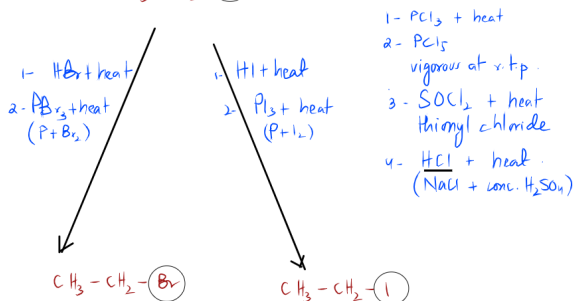 1- HBr + heat
2- PBr3 + heat
(P + Br2)
1- HI + heat
2- PI3 + heat
(P + I2)
1- PCl3 + heat
2- PCl5
vigorous at r.t.p.
3- SOCl2 + heat
thionyl chloride
4- HCl + heat.
(NaCl + conc. H2SO4)
CH3 - CH2 - Br
CH3 - CH2 - I